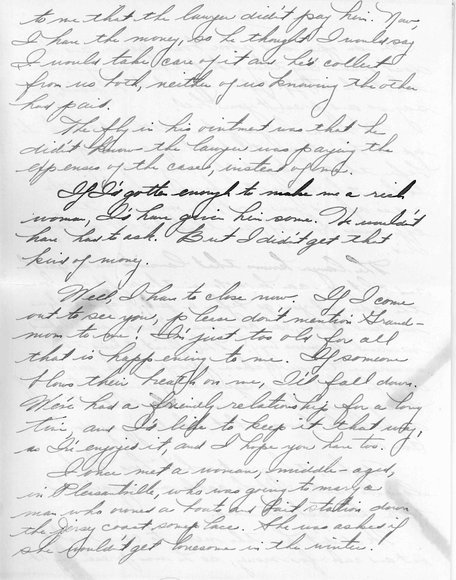 to me that the lawyer didn't pay him. Now,
I have the money, so he thought I would say
I would take care of it and he'd collect
from us both, neither of us knowing the other
had paid.
The fly in his ointment was that he
didn't know the lawyer was paying the
expenses of the case, instead of me.
If I'd gotten enough to make me a rich
woman, I'd have given him some. He wouldn't
have had to ask. But I didn't get that
kind of money.
Well, I have to close now. If I come
out to see you, please don't mention Grand-
mom to me! I'm just too old for all
that is happening to me. If someone
blows their breath on me, I'll fall down.
We've had a friendly relationship for a long
time and I'd like to keep it that way,
as I've enjoyed it, and I hope you have too.
I once met a woman, middle-aged,
in Pleasantville, who was going to marry a
man who owned a boat and bait station down
the Jersey coast someplace. She was asked if
she wouldn't get lonesome in the winter.